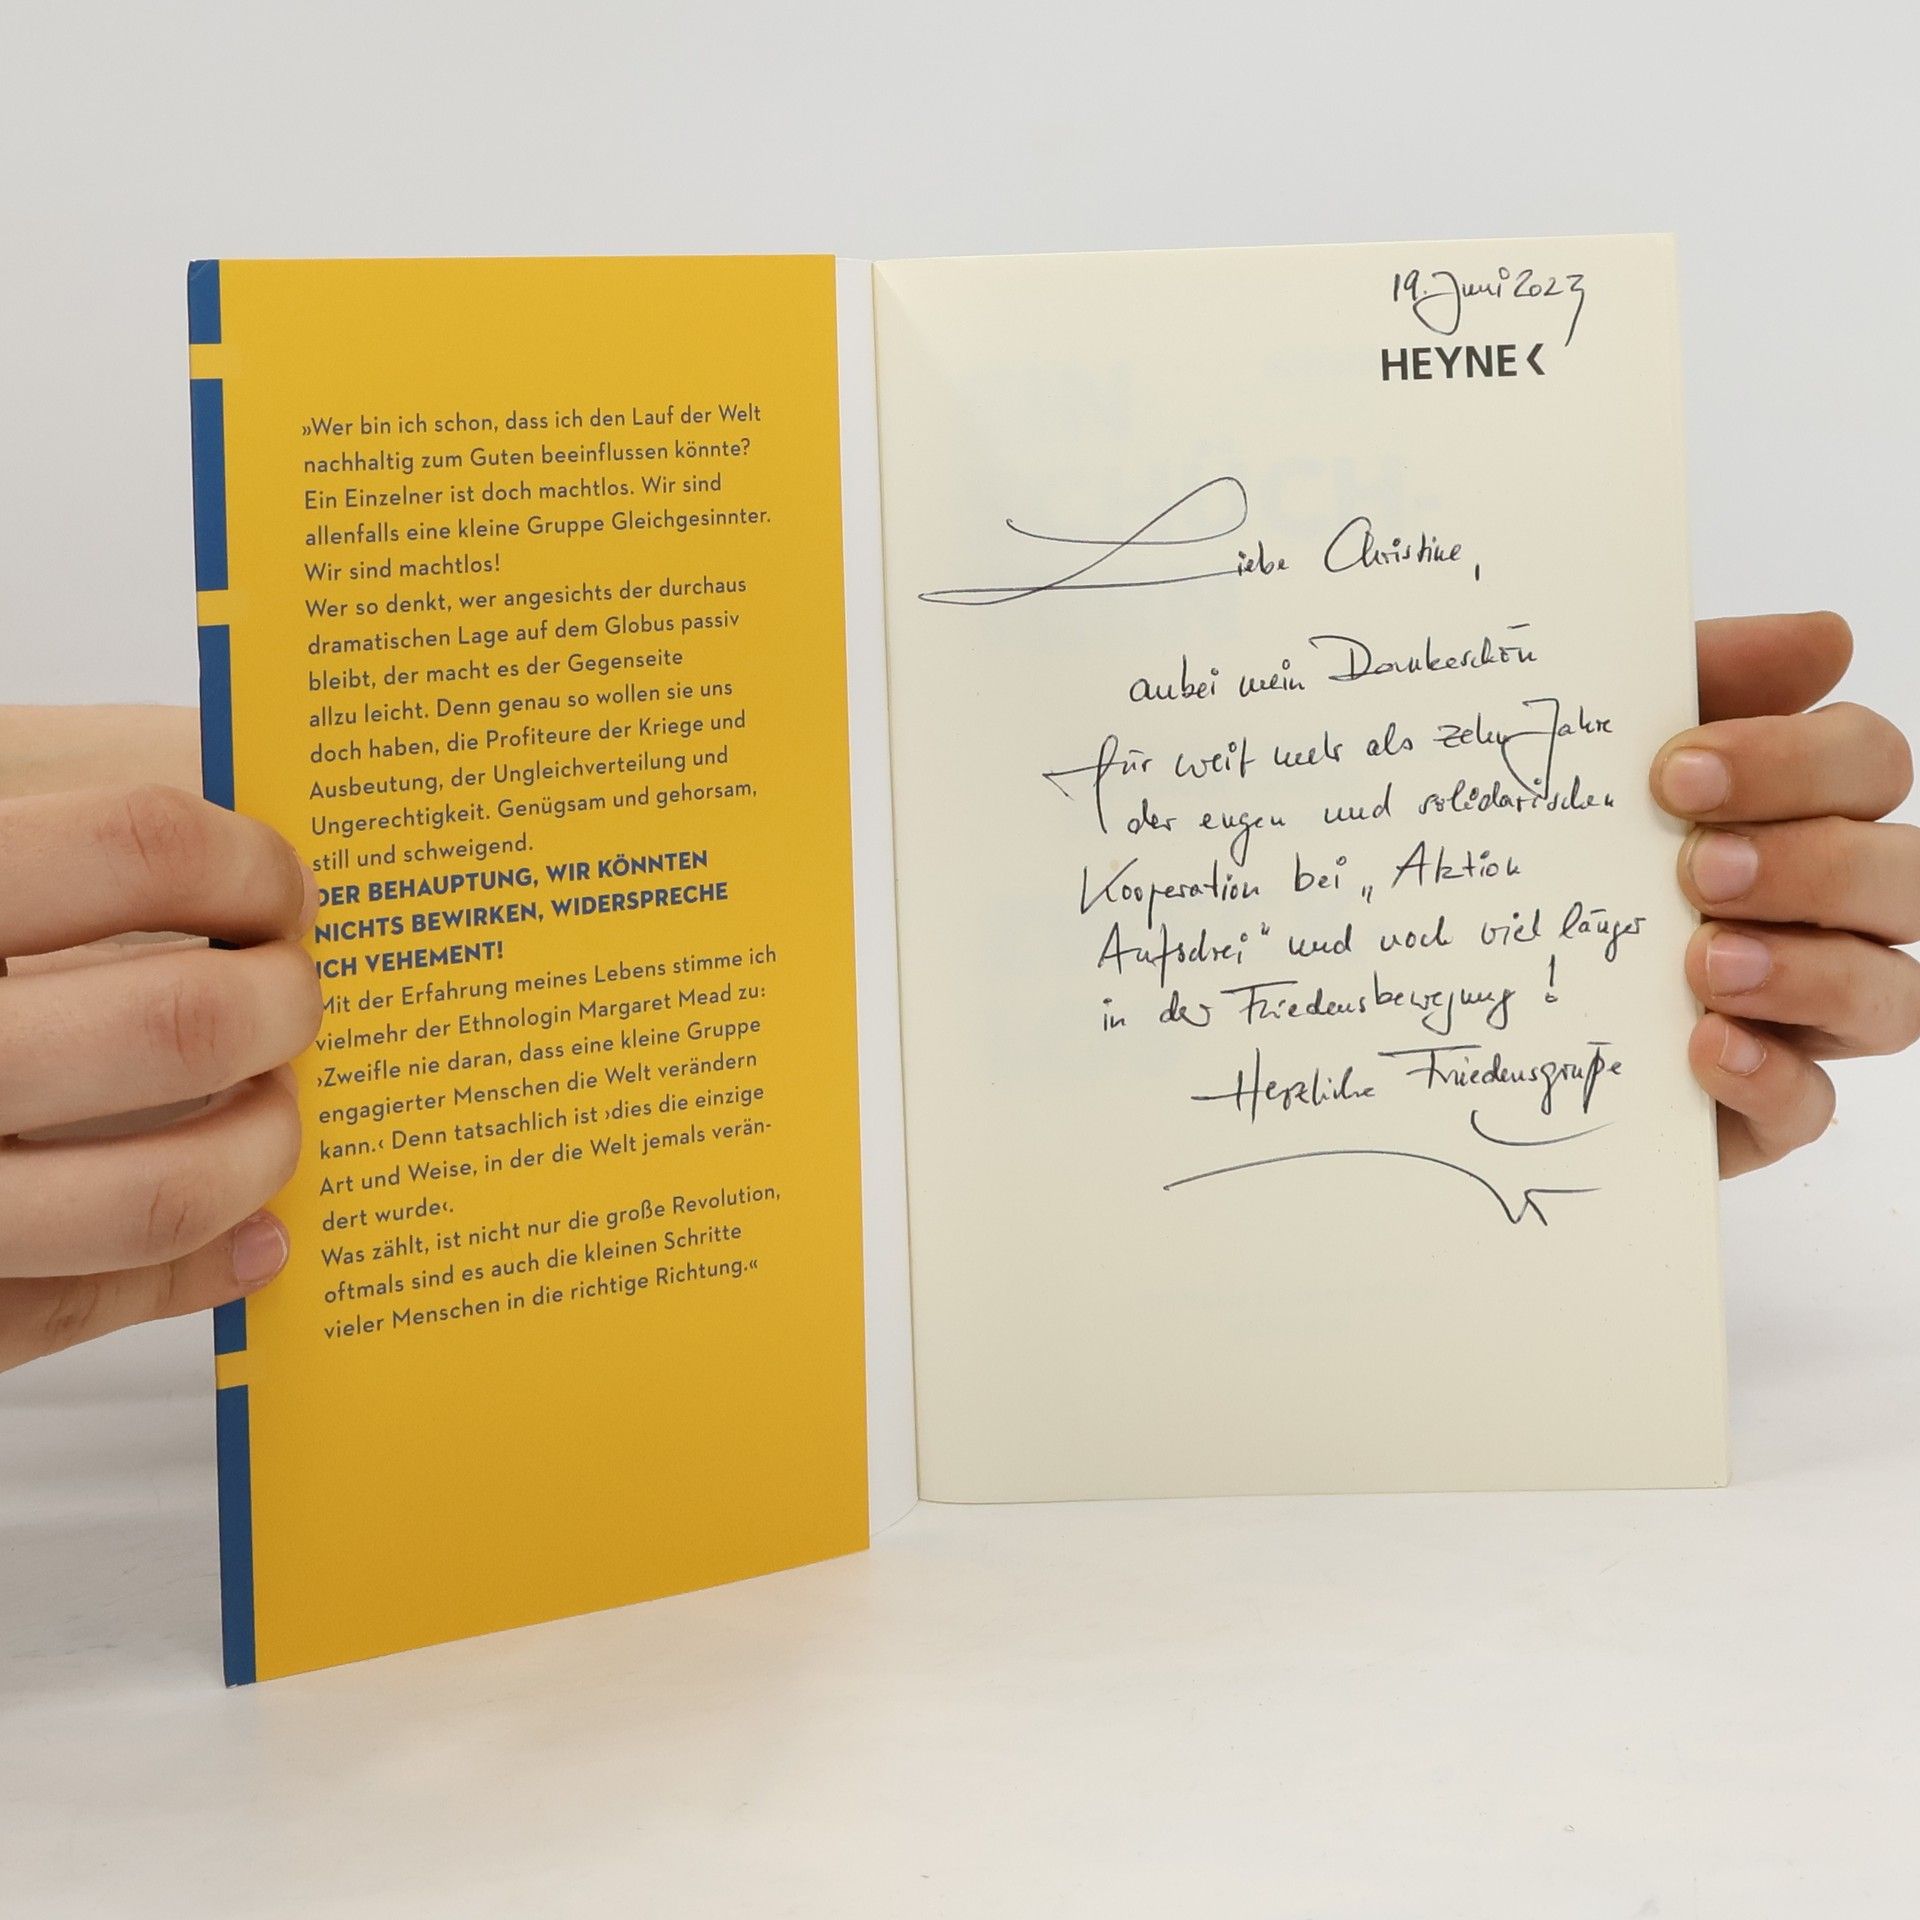 »Wer bin ich schon, dass ich den Lauf der Welt
nachhaltig zum Guten beeinflussen könnte?
Ein Einzelner ist doch machtlos. Wir sind
allenfalls eine kleine Gruppe Gleichgesinnter.
Wir sind machtlos!
Wer so denkt, wer angesichts der durchaus
dramatischen Lage auf dem Globus passiv
bleibt, der macht es der Gegenseite
allzu leicht. Denn genau so wollen sie uns
doch haben, die Profiteure der Kriege und
Ausbeutung, der Ungleichverteilung und
Ungerechtigkeit. Genügsam und gehorsam,
still und schweigend.
DER BEHAUPTUNG, WIR KÖNNTEN
NICHTS BEWIRKEN, WIDERSPRECHE
ICH VEHEMENT!
Mit der Erfahrung meines Lebens stimme ich
vielmehr der Ethnologin Margaret Mead zu:
›Zweifle nie daran, dass eine kleine Gruppe
engagierter Menschen die Welt verändern
kann.‹ Denn tatsächlich ist ›dies die einzige
Art und Weise, in der die Welt jemals verän-
dert wurde‹.
Was zählt, ist nicht nur die große Revolution,
oftmals sind es auch die kleinen Schritte
vieler Menschen in die richtige Richtung.«
19. Juni 2023
HEYNE <
Liebe Christine,
anbei mein Dankeschön
für weit mehr als zehn Jahre
der engen und solidarischen
Kooperation bei „Aktion
Aufschrei“ und noch viel länger
in der Friedensbewegung!
Herzliche Friedensgrüße